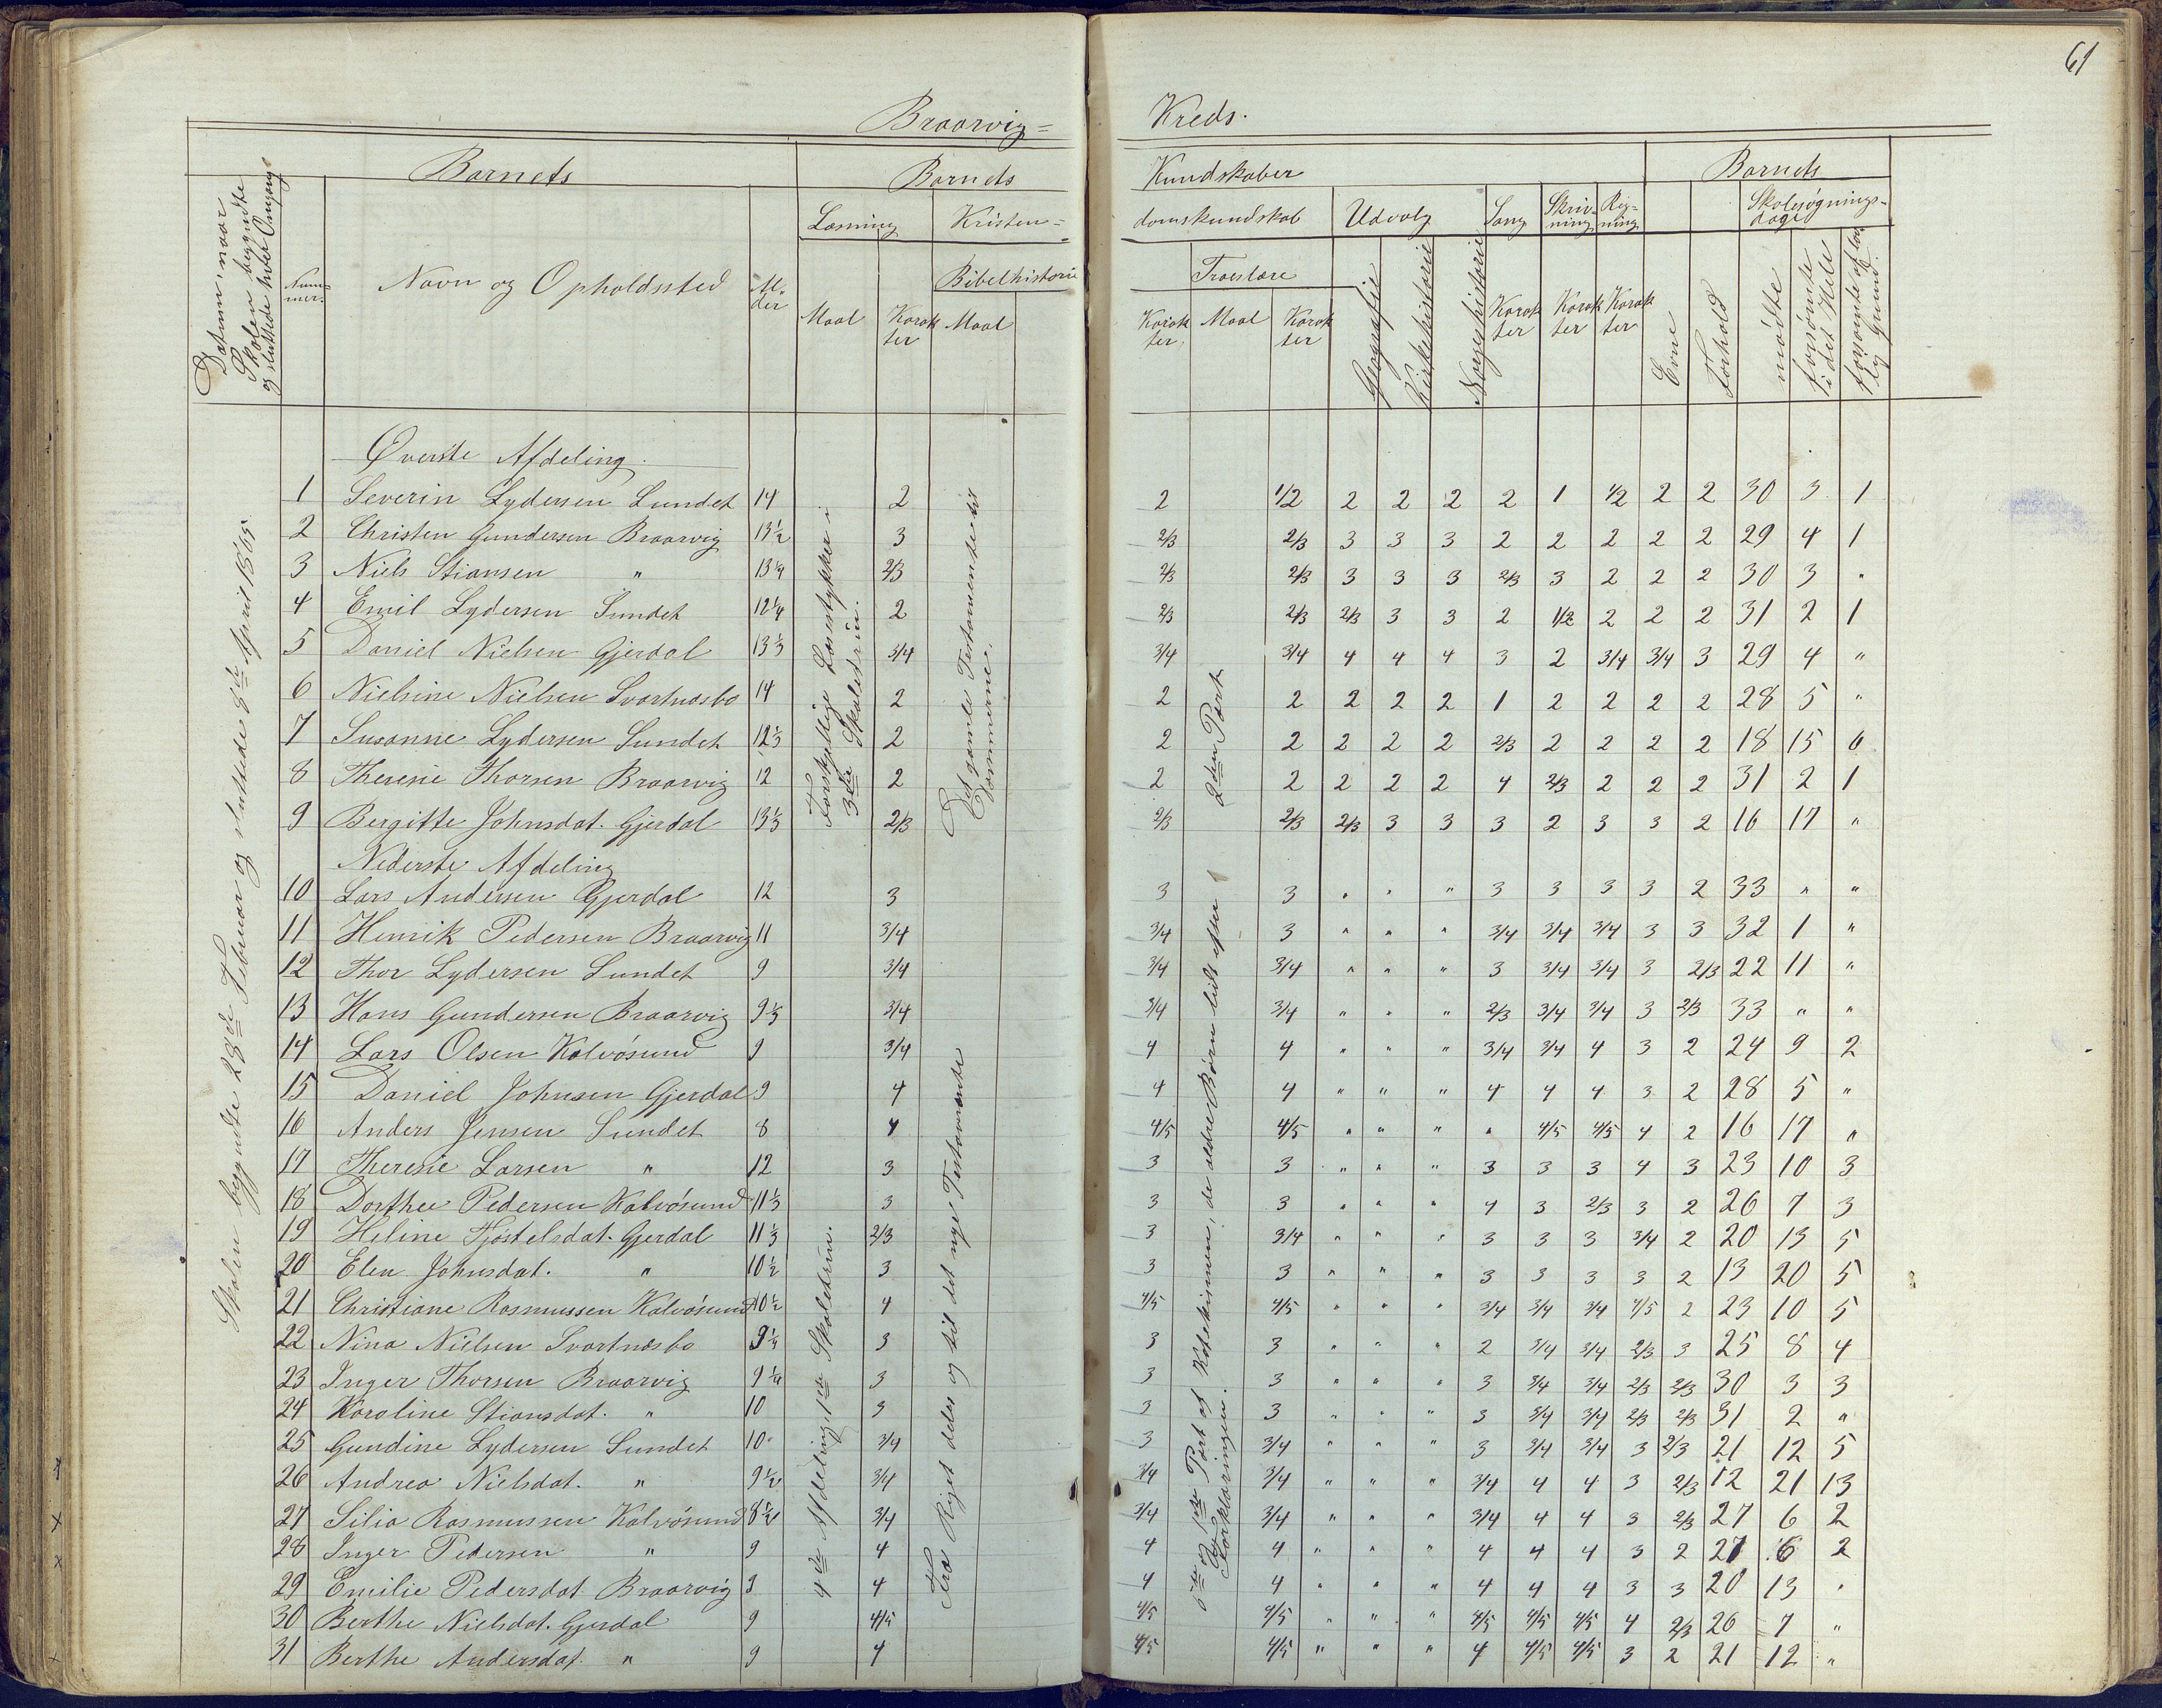 61
Braarvig= Kreds.
Barnets Barnets Kundskaber Barnets
Læsning Kristen= domskundskab Udvalg Sang Skriv=ning Reg=ning Skolesøgnings=dage
Datum, naar Skolen begyndte og sluttede hver Omgang
Num=mer. Navn og Opholdssted Al=der Maal Karakter Bibelhistorie Maal Karakter Troeslære Maal Karakter Geografie Kirkehistorie Norgeshistorie Karakter Karakter Karakter Evne Forhold mødte forsømte i det Hele forsømte af lovlig Grund.
Skolen begyndte 28de Februar og sluttede 8de April 1865.
Øverste Afdeling.
Forskjellige Læsestykker i 3die Skoletrin.
Det gamle Testamente til Dommerne.
1 Severin Lydersen Sundet 14 2 2 1/2 2 2 2 2 1 1/2 2 2 30 3 1
2 Christen Gundersen Braarvig 13½ 3 2/3 2/3 3 3 3 2 2 2 2 2 29 4 1
3 Niels Stiansen " 13¼ 2/3 2/3 2/3 3 3 3 2/3 3 2 2 2 30 3 "
4 Emil Lydersen Sundet 12¼ 2 2/3 2/3 2/3 3 3 2 1/2 2 2 2 31 2 1
5 Daniel Nielsen Gjerdal 13⅓ 3/4 3/4 3/4 4 4 4 3 2 3/4 3/4 3 29 4 "
6 Nielsine Nielsen Svartnæsbo 14 2 2 2 2 2 2 1 2 2 2 2 28 5 "
7 Susanne Lydersen Sundet 12⅓ 2 2 2 2 2 2 2/3 2 2 2 2 18 15 6
8 Theresie Thorsen Braarvig 12 2 2 2 2 2 2 4 2/3 2 2 2 31 2 1
9 Bergitte Johnsdat. Gjerdal 13⅓ 2/3 2/3 2/3 2/3 3 3 3 2 3 3 2 16 17 "
Nederste Afdeling
4de Afdeling, 1ste Skoletrin.
Fra Riget deles og til det nye Testamente
6te og 1ste Part af Katekismen, de ældre Børn lidt efter 2den Part Forklaringen.
10 Lars Andersen Gjerdal 12 3 3 3 " " " 3 3 3 3 2 33 " "
11 Henrik Pedersen Braarvig 11 3/4 3/4 3 " " " 3/4 3/4 3/4 3 3 32 1 "
12 Thor Lydersen Sundet 9 3/4 3/4 3/4 " " " 3 3/4 3/4 3 2/3 22 11 "
13 Hans Gundersen Braarvig 9⅓ 3/4 3/4 3/4 " " " 2/3 3/4 3/4 3 2/3 33 " "
14 Lars Olsen Kalvøsund 9 3/4 4 4 " " " 3/4 3/4 4 3 2 24 9 2
15 Daniel Johnsen Gjerdal 9 4 4 4 " " " 4 4 4 3 2 28 5 "
16 Anders Jensen Sundet 8 4 4/5 4/5 " " " " 4/5 4/5 4 2 16 17 "
17 Theresie Larsen " 12 3 3 3 " " " 3 3 3 4 3 23 10 3
18 Dorthee Pedersen Kalvøsund 11⅓ 3 3 3 " " " 4 3 2/3 3 2 26 7 3
19 Heline Tjøstelsdat. Gjerdal 11⅓ 2/3 3 3/4 " " " 3 3 3 3/4 2 20 13 5
20 Elen Johnsdat. " 10½ 3 3 3 " " " 3 3 3 3 2 13 20 5
21 Christiane Rasmussen Kalvøsund 10½ 4 4/5 4/5 " " " 3/4 3/4 3/4 4/5 2 23 10 5
22 Nina Nielsen Svartnæsbo 9¼ 3 3 3 " " " 2 3/4 3/4 2/3 3 25 8 4
23 Inger Thorsen Braarvig 9¼ 3 3 3 " " " 3 3/4 3/4 2/3 2/3 30 3 3
24 Karoline Stiansdat. " 10 3 3 3 " " " 3 3/4 3/4 2/3 2/3 31 2 "
25 Gundine Lydersen Sundet 10 3/4 3 3/4 " " " 3 3/4 3/4 3 2/3 21 12 5
26 Andrea Nielsdat. " 9½ 3/4 3/4 3/4 " " " 3/4 4 4 3 2/3 12 21 13
27 Silia Rasmussen Kalvøsund 8½ 3/4 3/4 3/4 " " " 3/4 4 4 3 2/3 27 6 2
28 Inger Pedersen " 9 4 4 4 " " " 4 4 4 3 2 27 6 2
29 Emilie Pedersdat Braarvig 9 4 4 4 " " " 4 4 4 3 3 20 13 "
30 Berthe Nielsdat. Gjerdal 9 4/5 4/5 4/5 " " " 4/5 4/5 4/5 4 2/3 26 7 "
31 Berthe Andersdat. " 9 4 4/5 4/5 " " " 4 4/5 4/5 3 2 21 12 "